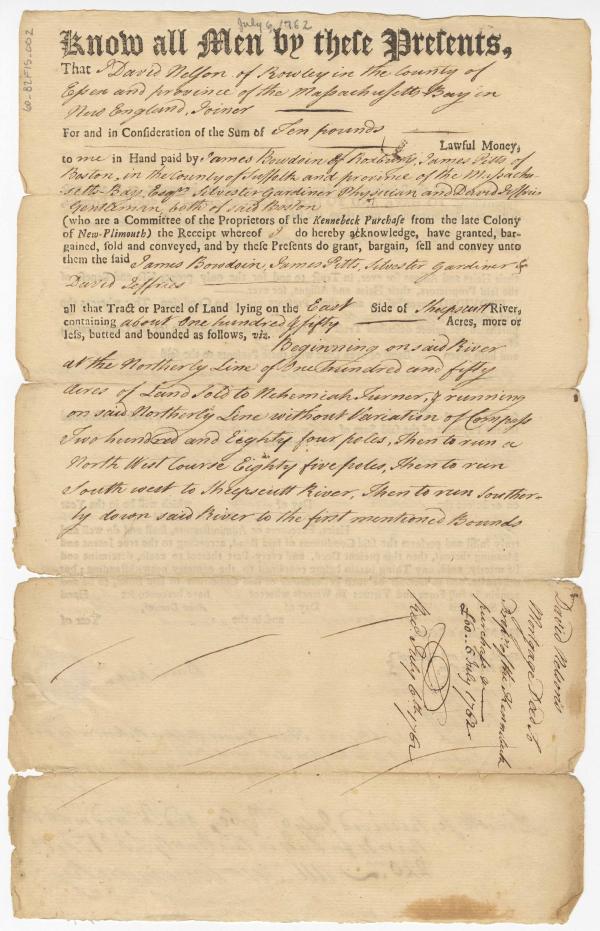 July 6, 1762
60-82F15.002
Know all Men by these Presents,
That I David Nelson of Rowley in the County of
Essex and province of the Massachusetts Bay in
New England, Joiner
For and in Consideration of the Sum of Ten pounds Lawful Money,
to me in Hand paid by James Bowdoin of Roxbury, James Pitts of
Boston, in the County of Suffolk and province of the Massachu-
setts Bay, Esqrs. Silvester Gardiner Physician and David Jeffries
Gentleman, both of said Boston
(who are a Committee of the Proprietors of the Kennebeck Purchase from the late Colony
of New-Plimouth) the Receipt whereof I do hereby acknowledge, have granted, bar-
gained, sold and conveyed, and by these Presents do grant, bargain, sell and convey unto
them the said James Bowdoin, James Pitts, Silvester Gardiner &
David Jeffries
all that Tract or Parcel of Land lying on the East Side of Sheepscutt River,
containing about One hundred & fifty Acres, more or
less, butted and bounded as follows, viz.
Beginning on said River
at the Northerly Line of One hundred and fifty
Acres of Land Sold to Nehemiah Turner, & running
on said Northerly Line without Variation of Compass
Two hundred and Eighty four poles, Then to run a
North West Course Eighty five poles, Then to run
South west to Sheepscutt River, Then to run Souther-
ly down said River to the first mentioned Bounds
David Nelson's
Mortgage Deed to
of the Kennebeck
purchase
£10.. 6 July 1762
Recd. July 6th. 1762